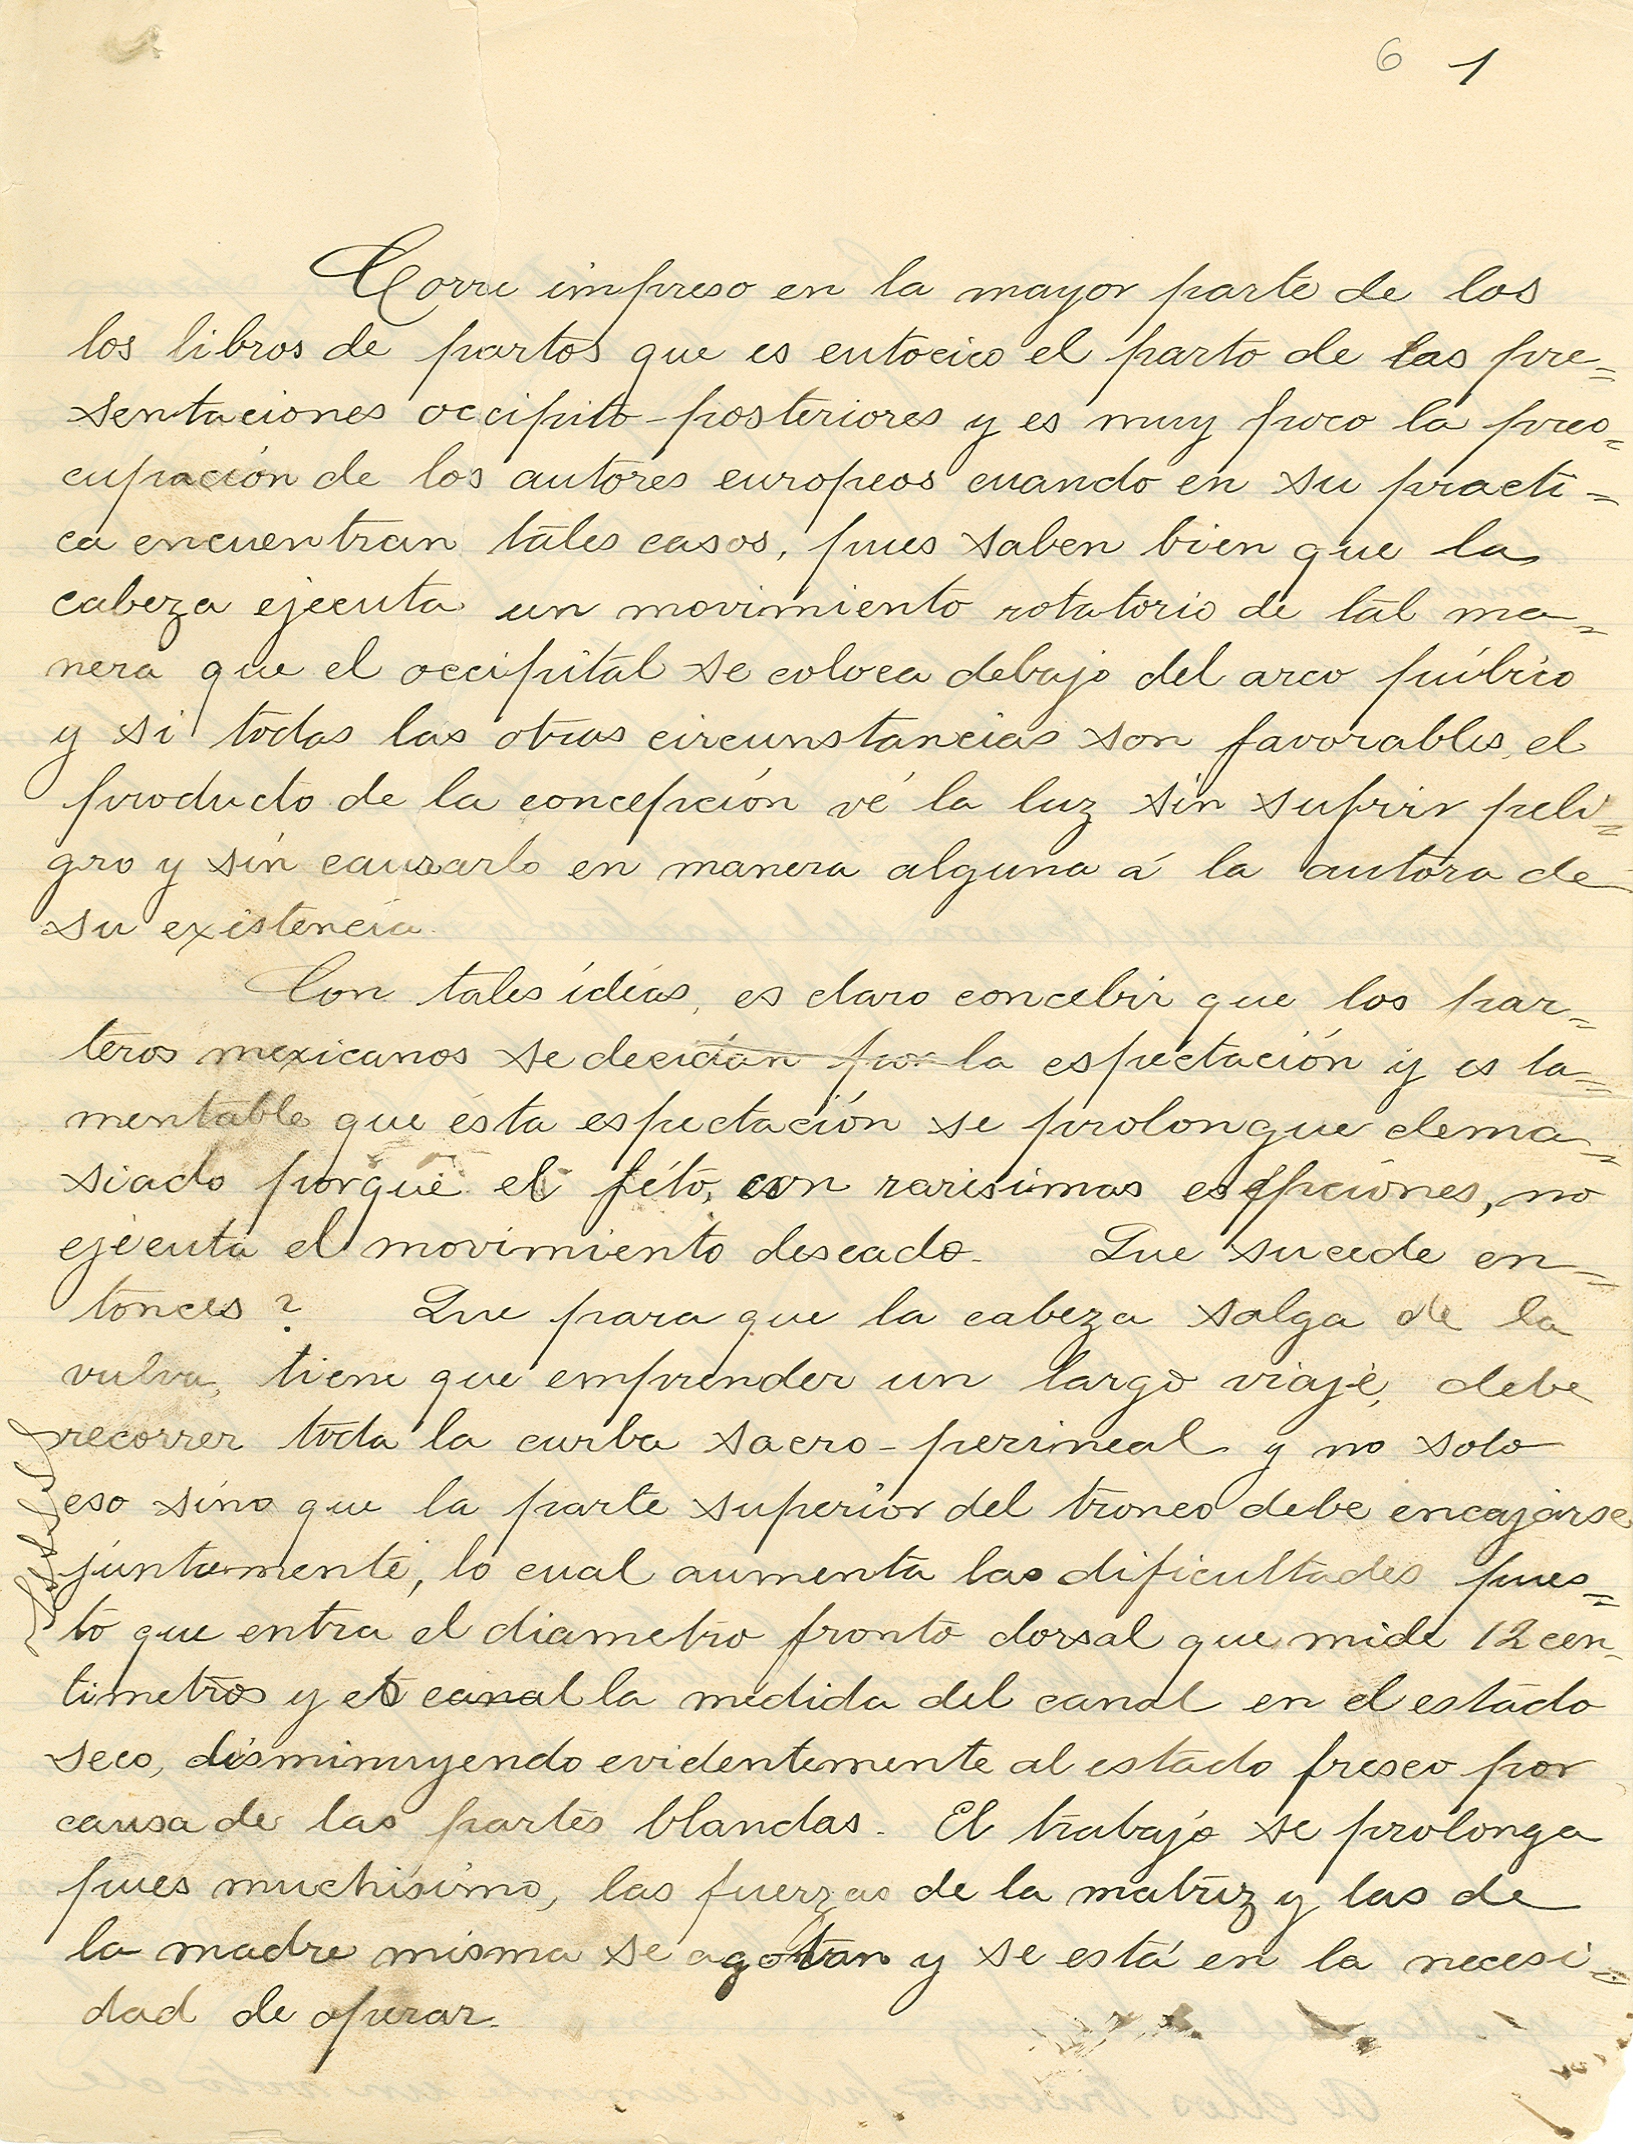 6 1
Corre impreso en la mayor parte de los
los libros de partos que es eutocico el parto de las pre=
sentaciones occipito-posteriores y es muy poco la preo=
cupación de los autores europeos cuando en su practi=
ca encuentran tales casos, pues saben bien que la
cabeza ejecuta un movimiento rotatorio de tal ma=
nera que el occipital se coloca debajo del arco púbico
y si todas las otras circunstancias son favorables, el
producto de la concepción vé la luz sin sufrir peli=
gro y sin causarlo en manera alguna á la autora de
su existencia.
Con tales ideas, es claro concebir que los par=
teros mexicanos se decidan por la espectación y es la=
mentable que ésta espectación se prolongue dema=
siado porque el féto, con rarisimas esepciones, no
ejecuta el movimiento deseado. Que sucede en=
tonces? Que para que la cabeza salga de la
vulva, tiene que emprender un largo viaje, debe
recorrer toda la curba sacro-perineal y no solo
eso sino que la parte superior del tronco debe encajarse
juntamente, lo cual aumenta las dificultades pues=
to que entra el diametro fronto dorsal que mide 12 cen=
timetros y es canal la medida del canal en el estado
seco, disminuyendo evidentemente al estado fresco por
causa de las partes blandas. El trabajo se prolonga
pues muchísimo, las fuerzas de la matriz y las de
la madre misma se agotan y se está en la necesi=
dad de operar.